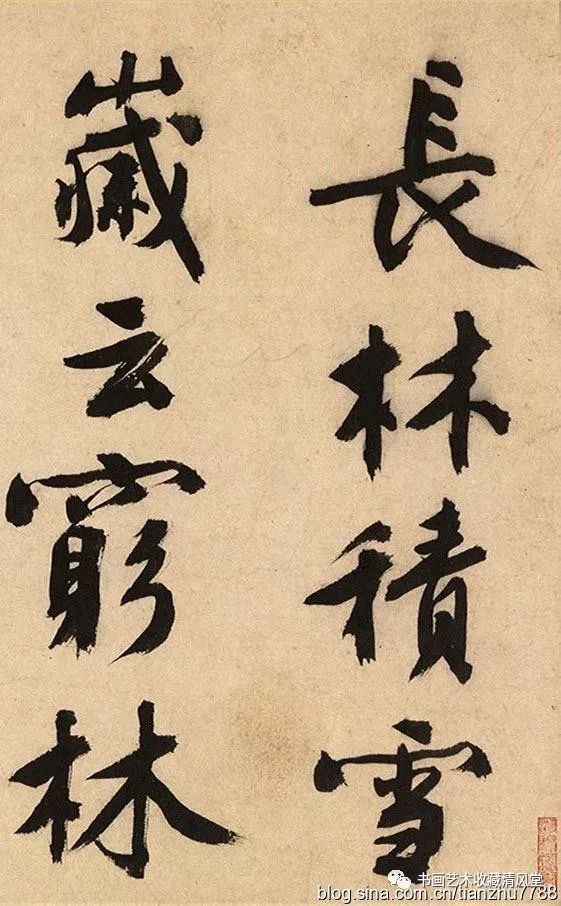 長林積雪
嵗云窮林
书画艺术收藏清风堂
blog.sina.com.cn/tianzhu7788